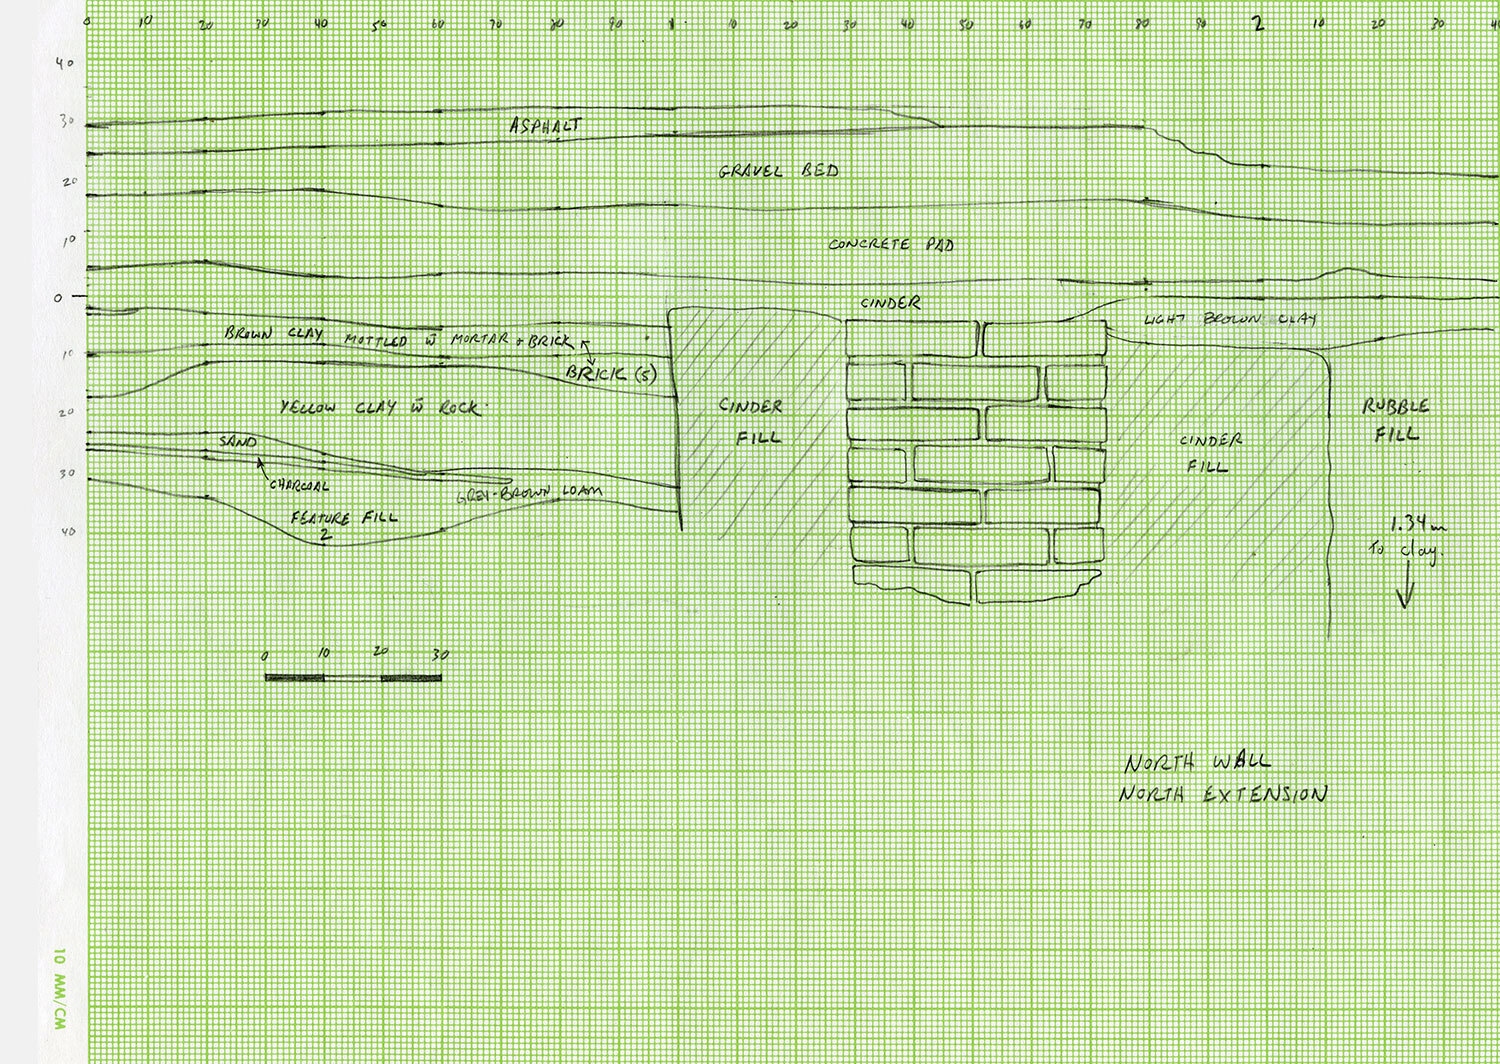 0 10 20 30 40 50 60 70 80 90 1 10 20 30 40 50 60 70 80 90 2 10 20 30 40
40
30
20
10
0
10
20
30
40
ASPHALT
GRAVEL BED
CONCRETE PAD
CINDER
LIGHT BROWN CLAY
BROWN CLAY MOTTLED w̄ MORTAR + BRICK
BRICK (5)
YELLOW CLAY w̄ ROCK
CINDER
FILL
CINDER
FILL
RUBBLE
FILL
SAND
CHARCOAL
GREY-BROWN LOAM
FEATURE FILL
2
1.34 m
To clay.
0 10 20 30
NORTH WALL
NORTH EXTENSION
10 MM/CM